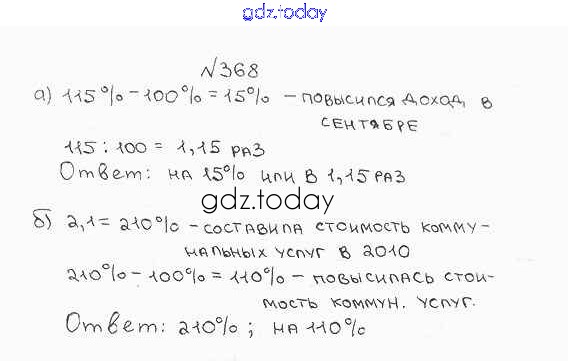 gdz.today
№368
а) 115% - 100% = 15% - повысился доход в
сентябре
115 : 100 = 1,15 раз
Ответ: на 15% или в 1,15 раз
gdz.today
б) 2,1 = 210% - составила стоимость комму-
нальных услуг в 2010
210% - 100% = 110% - повысилась стои-
мость коммун. услуг.
Ответ: 210% ; на 110%